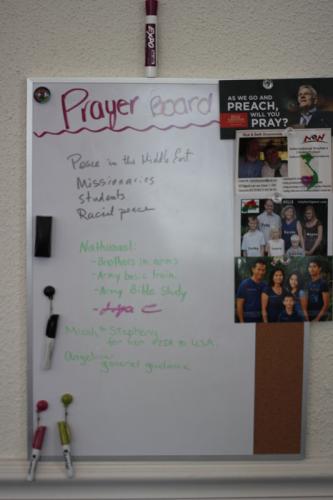 EXPO
Prayer Board
AS WE GO AND
PREACH,
WILL YOU
PRAY?
Peace in the Middle East
Missionaries
Students
Racial peace
Nathanael:
- Brothers in arms
- Army basic train.
- Army Bible Study
Micah & Stephany
for her VISA to USA.
Angelina
general guidance